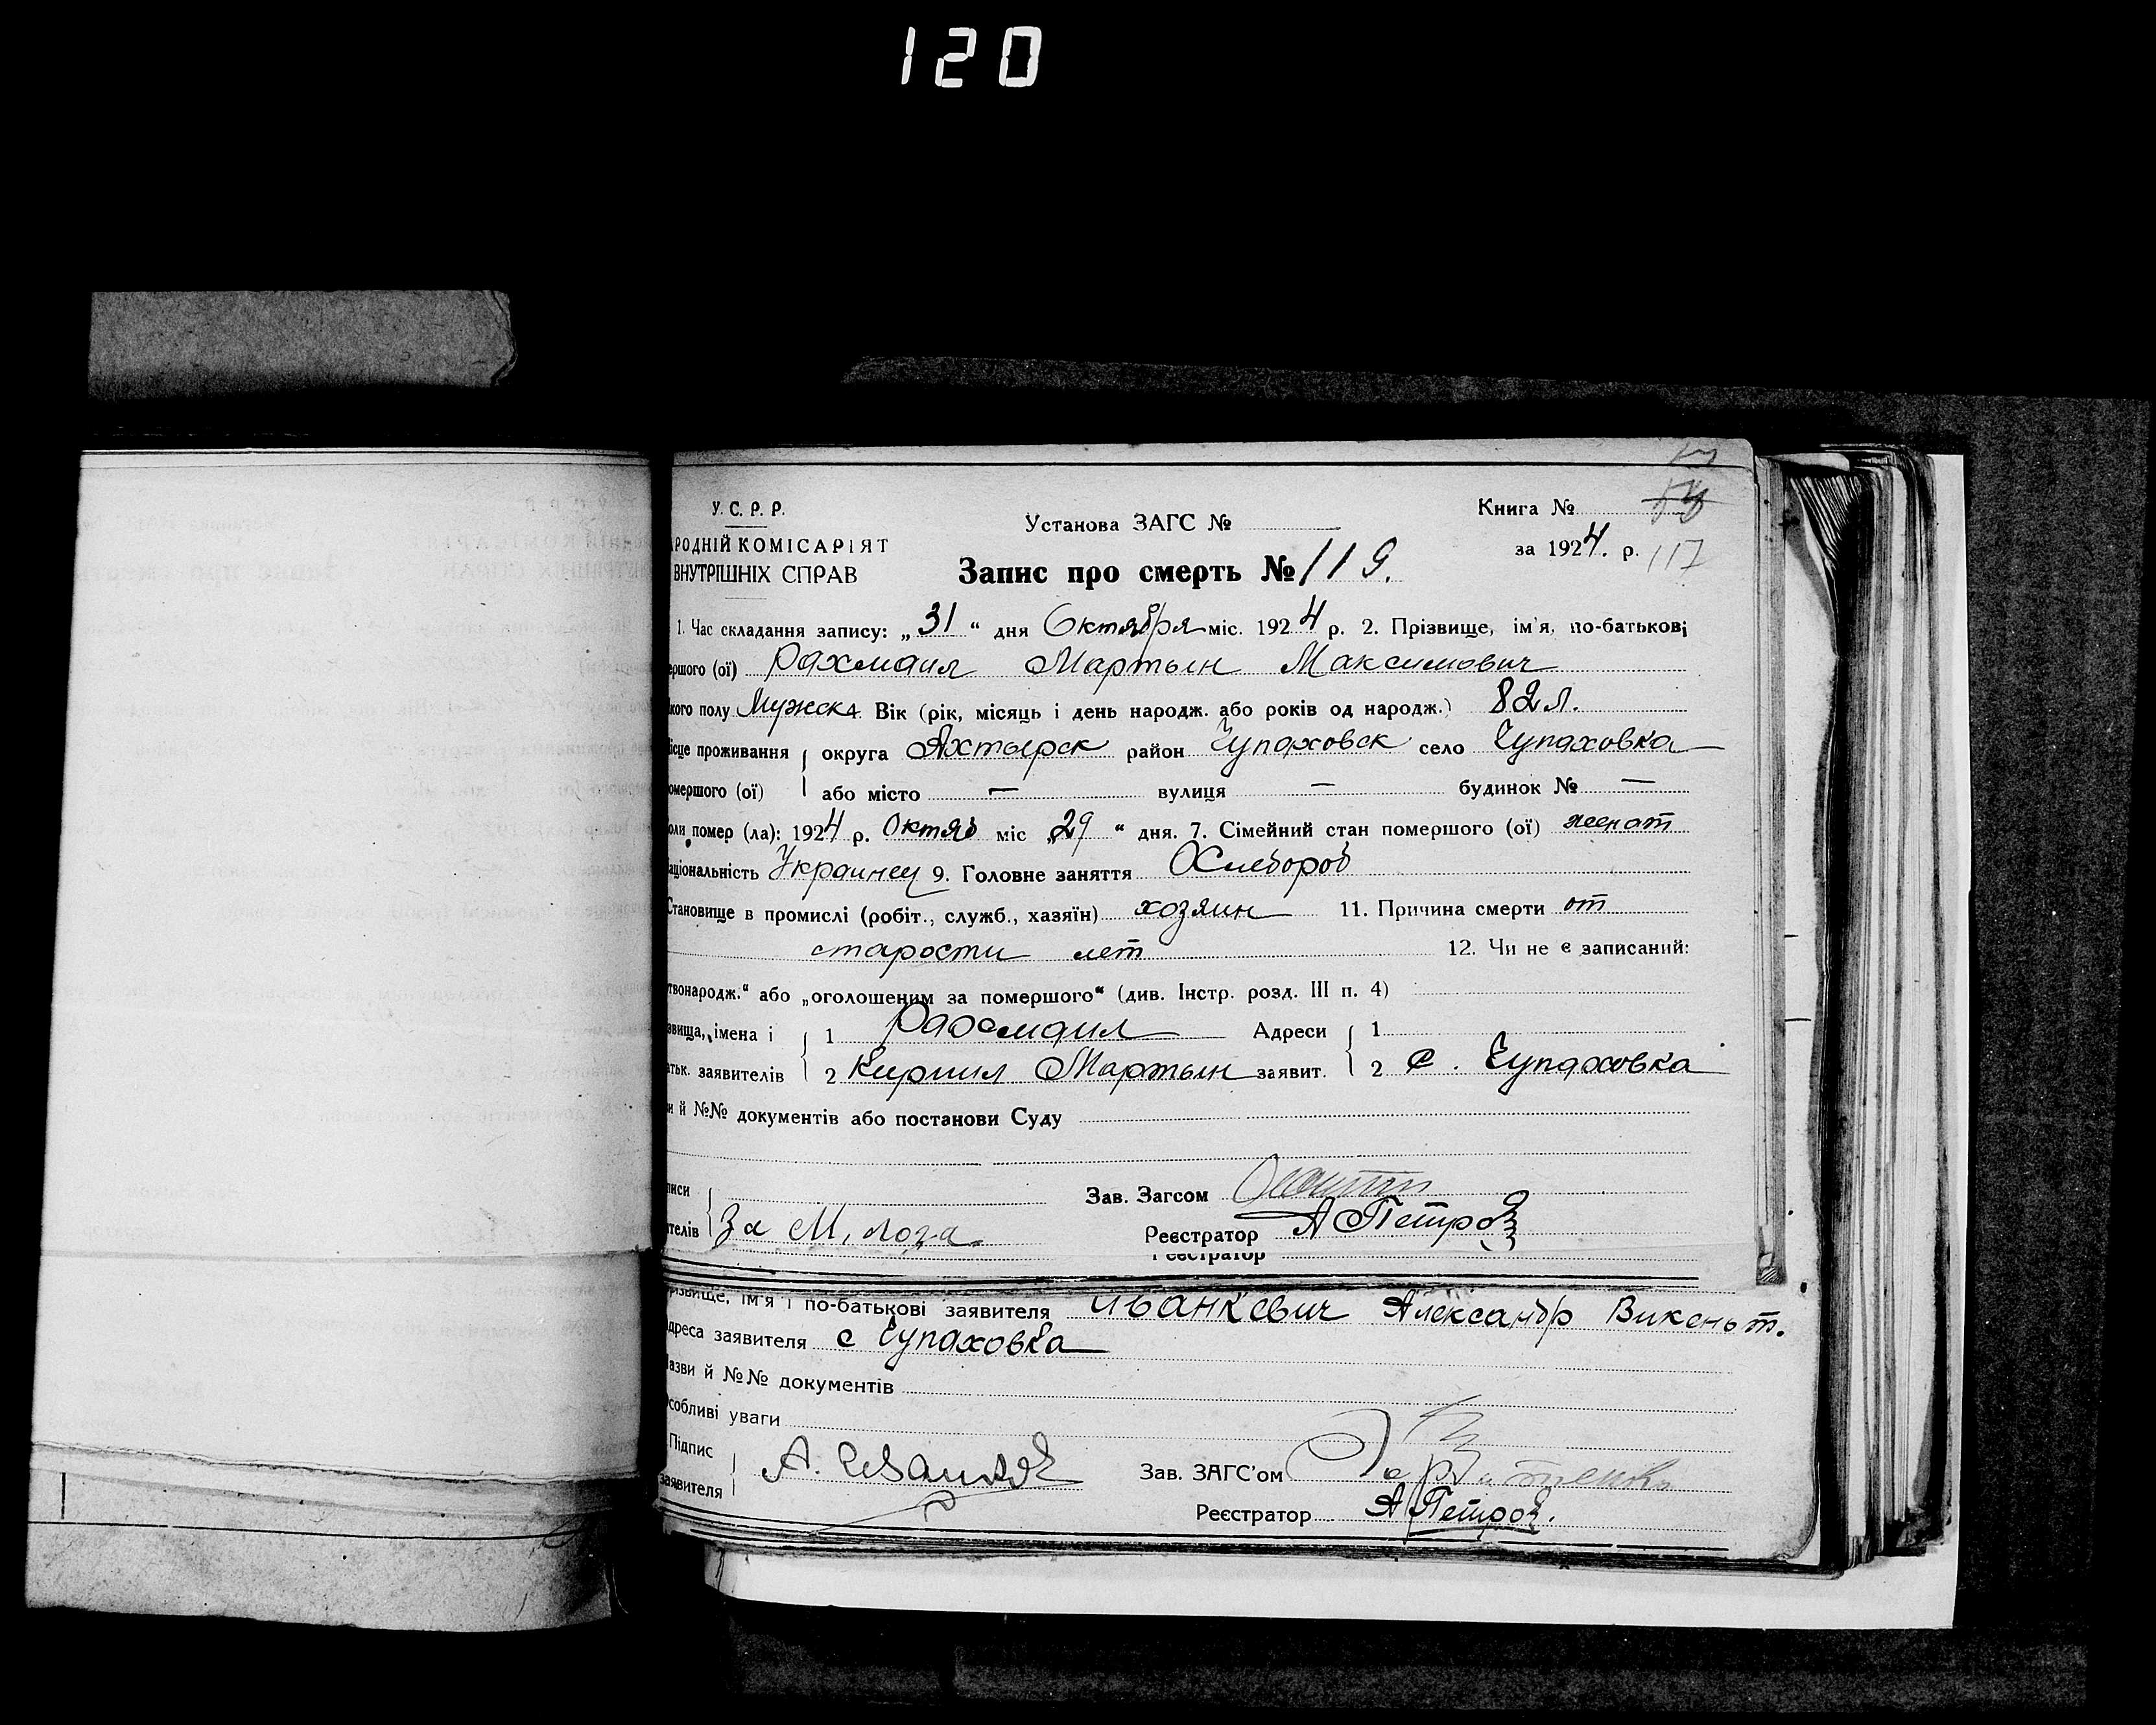 120
У. С. Р. Р.
Установа ЗАГС №
Книга №
РОДНІЙ КОМІСАРІЯТ
за 1924. р. 117
ВНУТРІШНІХ СПРАВ
Запис про смерть № 119.
1. Час складання запису: „31“ дня Октября міс. 1924 р. 2. Прізвище, ім'я, по-батькові
ершого (ої) Рахмаил Мартын Максимович
кого полу Мужска. Вік (рік, місяць і день народж. або років од народж.) 82 л.
ісце проживання округа Ахтырск район Чупаховск село Чупаховка
омершого (ої) або місто — вулиця — будинок № —
оли помер (ла): 1924 р. Октяб міс „29“ дня. 7. Сімейний стан помершого (ої) женат
аціональність Украинец 9. Головне заняття Хлебороб
Становище в промислі (робіт., служб., хазяїн) хозяин 11. Причина смерти от
старости лет 12. Чи не є записаний:
твонародж.“ або „оголошеним за помершого“ (див. Інстр. розд. III п. 4)
звища, імена і 1 Рахмаил Адреси 1
атьк. заявителів 2 Кирилл Мартын заявит. 2 с. Чупаховка
и й №№ документів або постанови Суду
писи Зав. Загсом
телів За М, лога Реєстратор А Петров
Реєстратор
різвище, ім'я і по-батькові заявителя Иванкевич Александр Викеньт.
дреса заявителя с Чупаховка
Назви й №№ документів
Особливі уваги
Підпис
заявителя А. Иванкев Зав. ЗАГС'ом
Реєстратор А Петров.